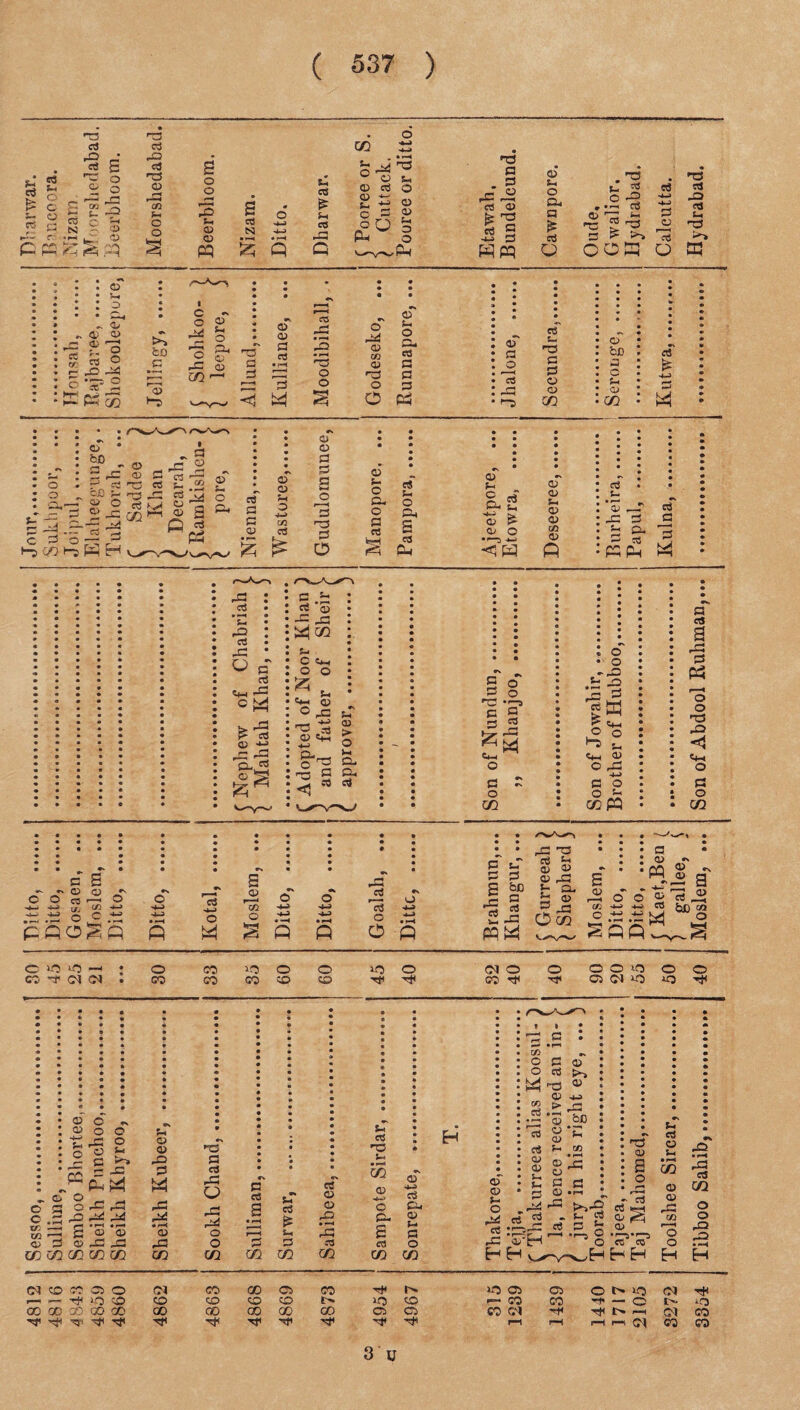 ( 537 )
4812 Sessoo, ...... 30 Ditto, ...... Jour, ...... Dharwar.
4816 Sullime, ...... 45 Ditto, ...... Sukhpoor, ... Bancoora.
4843 Semboo Bhortee, ...... 25 Gosaen, ... Joipul, ...... Honsah, ...... Nizam.
4859 Sheikh Punchoo, ...... 21 Moslem, ... Elaheegunge, . Rajbaree, ...... Moorshedabad.
4860 Sheikh Khyroo, ...... : Ditto, ...... Tukhorah, ... Shokooleepore, Beerbhoom.
4862 Sheikh Kuber, ...... 30 Ditto, ...... { Saddee Khan Decarah, } Jellingy, ...... Moorshedabad.
4863 Sookh Chand, ...... 33 Kotal, ...... { Ramkishen-pore, } { Shohkoo-leepore, } Beerbhoom.
4868 Sulliman, ...... 35 Moslem, ... { Nephew of Chabriah Mahtah Khan, ...... } Nienna, ...... Allund, ...... Nizam.
4869 Surwar, ...... 60 Ditto, ...... Wastoree, ...... Kullianee, ... Ditto.
4873 Sahibeea, ...... 60 Ditto, ...... { Adopted of Noor Khan and father of Sheir approver, ...... } Gudulomunee, Moodibihall, . Dharwar.
4954 Sampote Sirdar, ...... 45 Goalah, ... Manopore, ... Godeseko, ... { Pooree or S. Cuttack.
4967 Sonrepate, ...... 40 Ditto, ...... Pampora, ...... Runnapore, ... Pooree or ditto.
T.
315 Thakoree, ...... 32 Brahmun, ... Son of Nundun, ...... Ajeetpore, ... Etawah,
1239 Tejja, ...... 40 Khangur, ... ,, Khanjoo, ...... Etowra, ...... Jhalone, ...... Bundelcund.
1439 { Thakurreea alias Koosul-la, hence received an in-jury in his right eye, ... } 40 { Gurreeah Shepherd } Deseree, ...... Secundra, ...... Cawnpore.
1440 Toorab, ...... 90 Moslem, ... Son of Jowahir, ...... Oude,
1717 Tajeea, ...... 20 Ditto, ...... Brother of Hubboo, ...... Burheira, ...... Seronge, ...... Gwalior,
2105 Taj Mahomed, ...... 55 Ditto, ...... Papul, ...... Hydrabad.
3272 Toolshee Sircar, ...... 50 { Kaet, Ben gallee, } Kulna, ...... Kutwa, ...... Calcutta.
3354 Tibboo Sahib, ...... 40 Moslem, ... Son of Abdool Ruhman, ... Hydrabad.
3 U